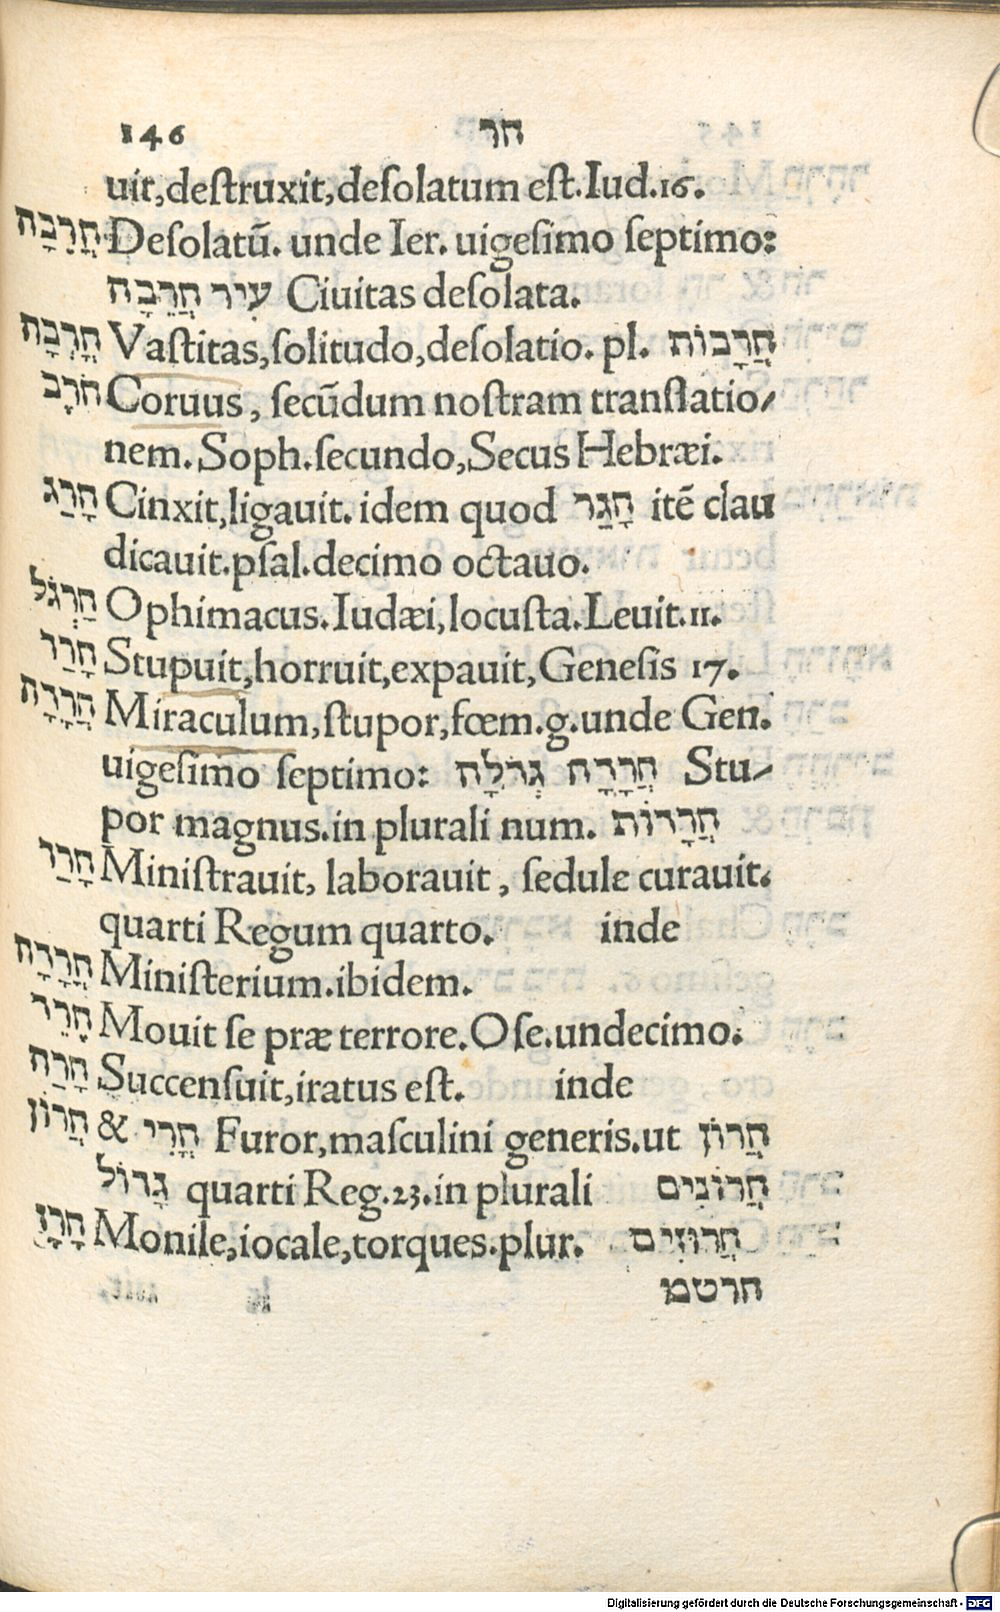 146 חר
uit,destruxit,desolatum est.Iud.16.
חֲרֵבָה Desolatũ. unde Ier. uigesimo septimo:
עִיר חֲרֵבָה Ciuitas desolata.
חָרְבָּה Vastitas,solitudo,desolatio. pl. חֳרָבוֹת
חֹרֶב Coruus, secũdum nostram translatio/
nem.Soph.secundo,Secus Hebræi.
חָרַג Cinxit,ligauit. idem quod חָגַר itẽ clau
dicauit.psal.decimo octauo.
חַרְגֹּל Ophimacus.Iudæi,locusta.Leuit.11.
חָרַד Stupuit,horruit,expauit,Genesis 17.
חֲרָדָה Miraculum,stupor,fœm.g.unde Gen.
uigesimo septimo: חֲרָדָה גְדֹלָה Stu/
por magnus.in plurali num. חֲרָדוֹת
חָרַד Ministrauit, laborauit, sedule curauit.
quarti Regum quarto. inde
חֲרָדָה Ministerium.ibidem.
חָרֵד Mouit se præ terrore.Ose.undecimo.
חָרָה Succensuit,iratus est. inde
חֲרוֹן & חֳרִי Furor,masculini generis.ut חֲרוֹן
גָּדוֹל quarti Reg.23.in plurali חֲרוֹנִים
חָרָז Monile,iocale,torques.plur. חֲרוּזִים
חרטמ
Digitalisierung gefördert durch die Deutsche Forschungsgemeinschaft - DFG